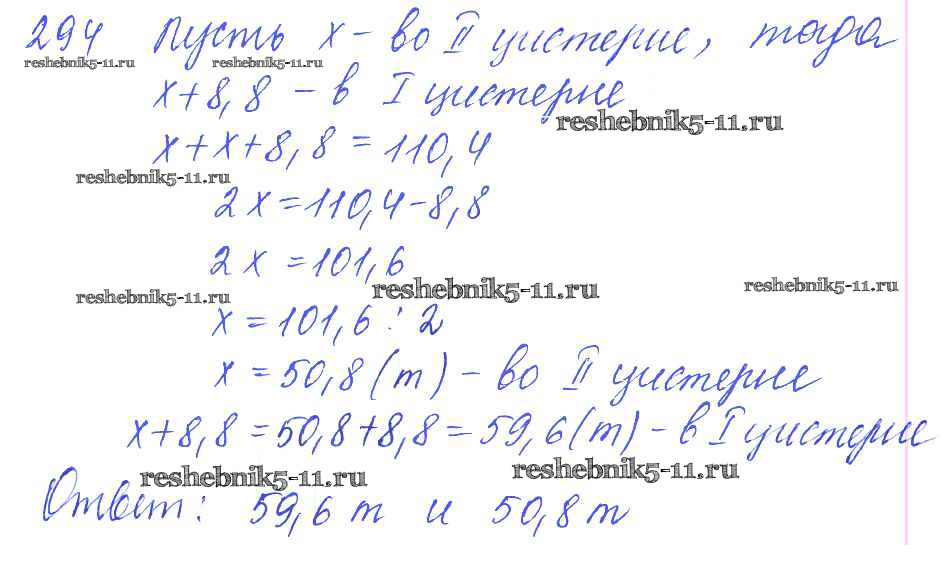 294 Пусть х - во II цистерне, тогда
reshebnik5-11.ru reshebnik5-11.ru
х+8,8 - в I цистерне
reshebnik5-11.ru
х+х+8,8=110,4
reshebnik5-11.ru
2х=110,4-8,8
2х=101,6
reshebnik5-11.ru reshebnik5-11.ru reshebnik5-11.ru
х=101,6:2
х=50,8(т) - во II цистерне
х+8,8=50,8+8,8=59,6(т) - в I цистерне
reshebnik5-11.ru reshebnik5-11.ru
Ответ: 59,6 т и 50,8 т